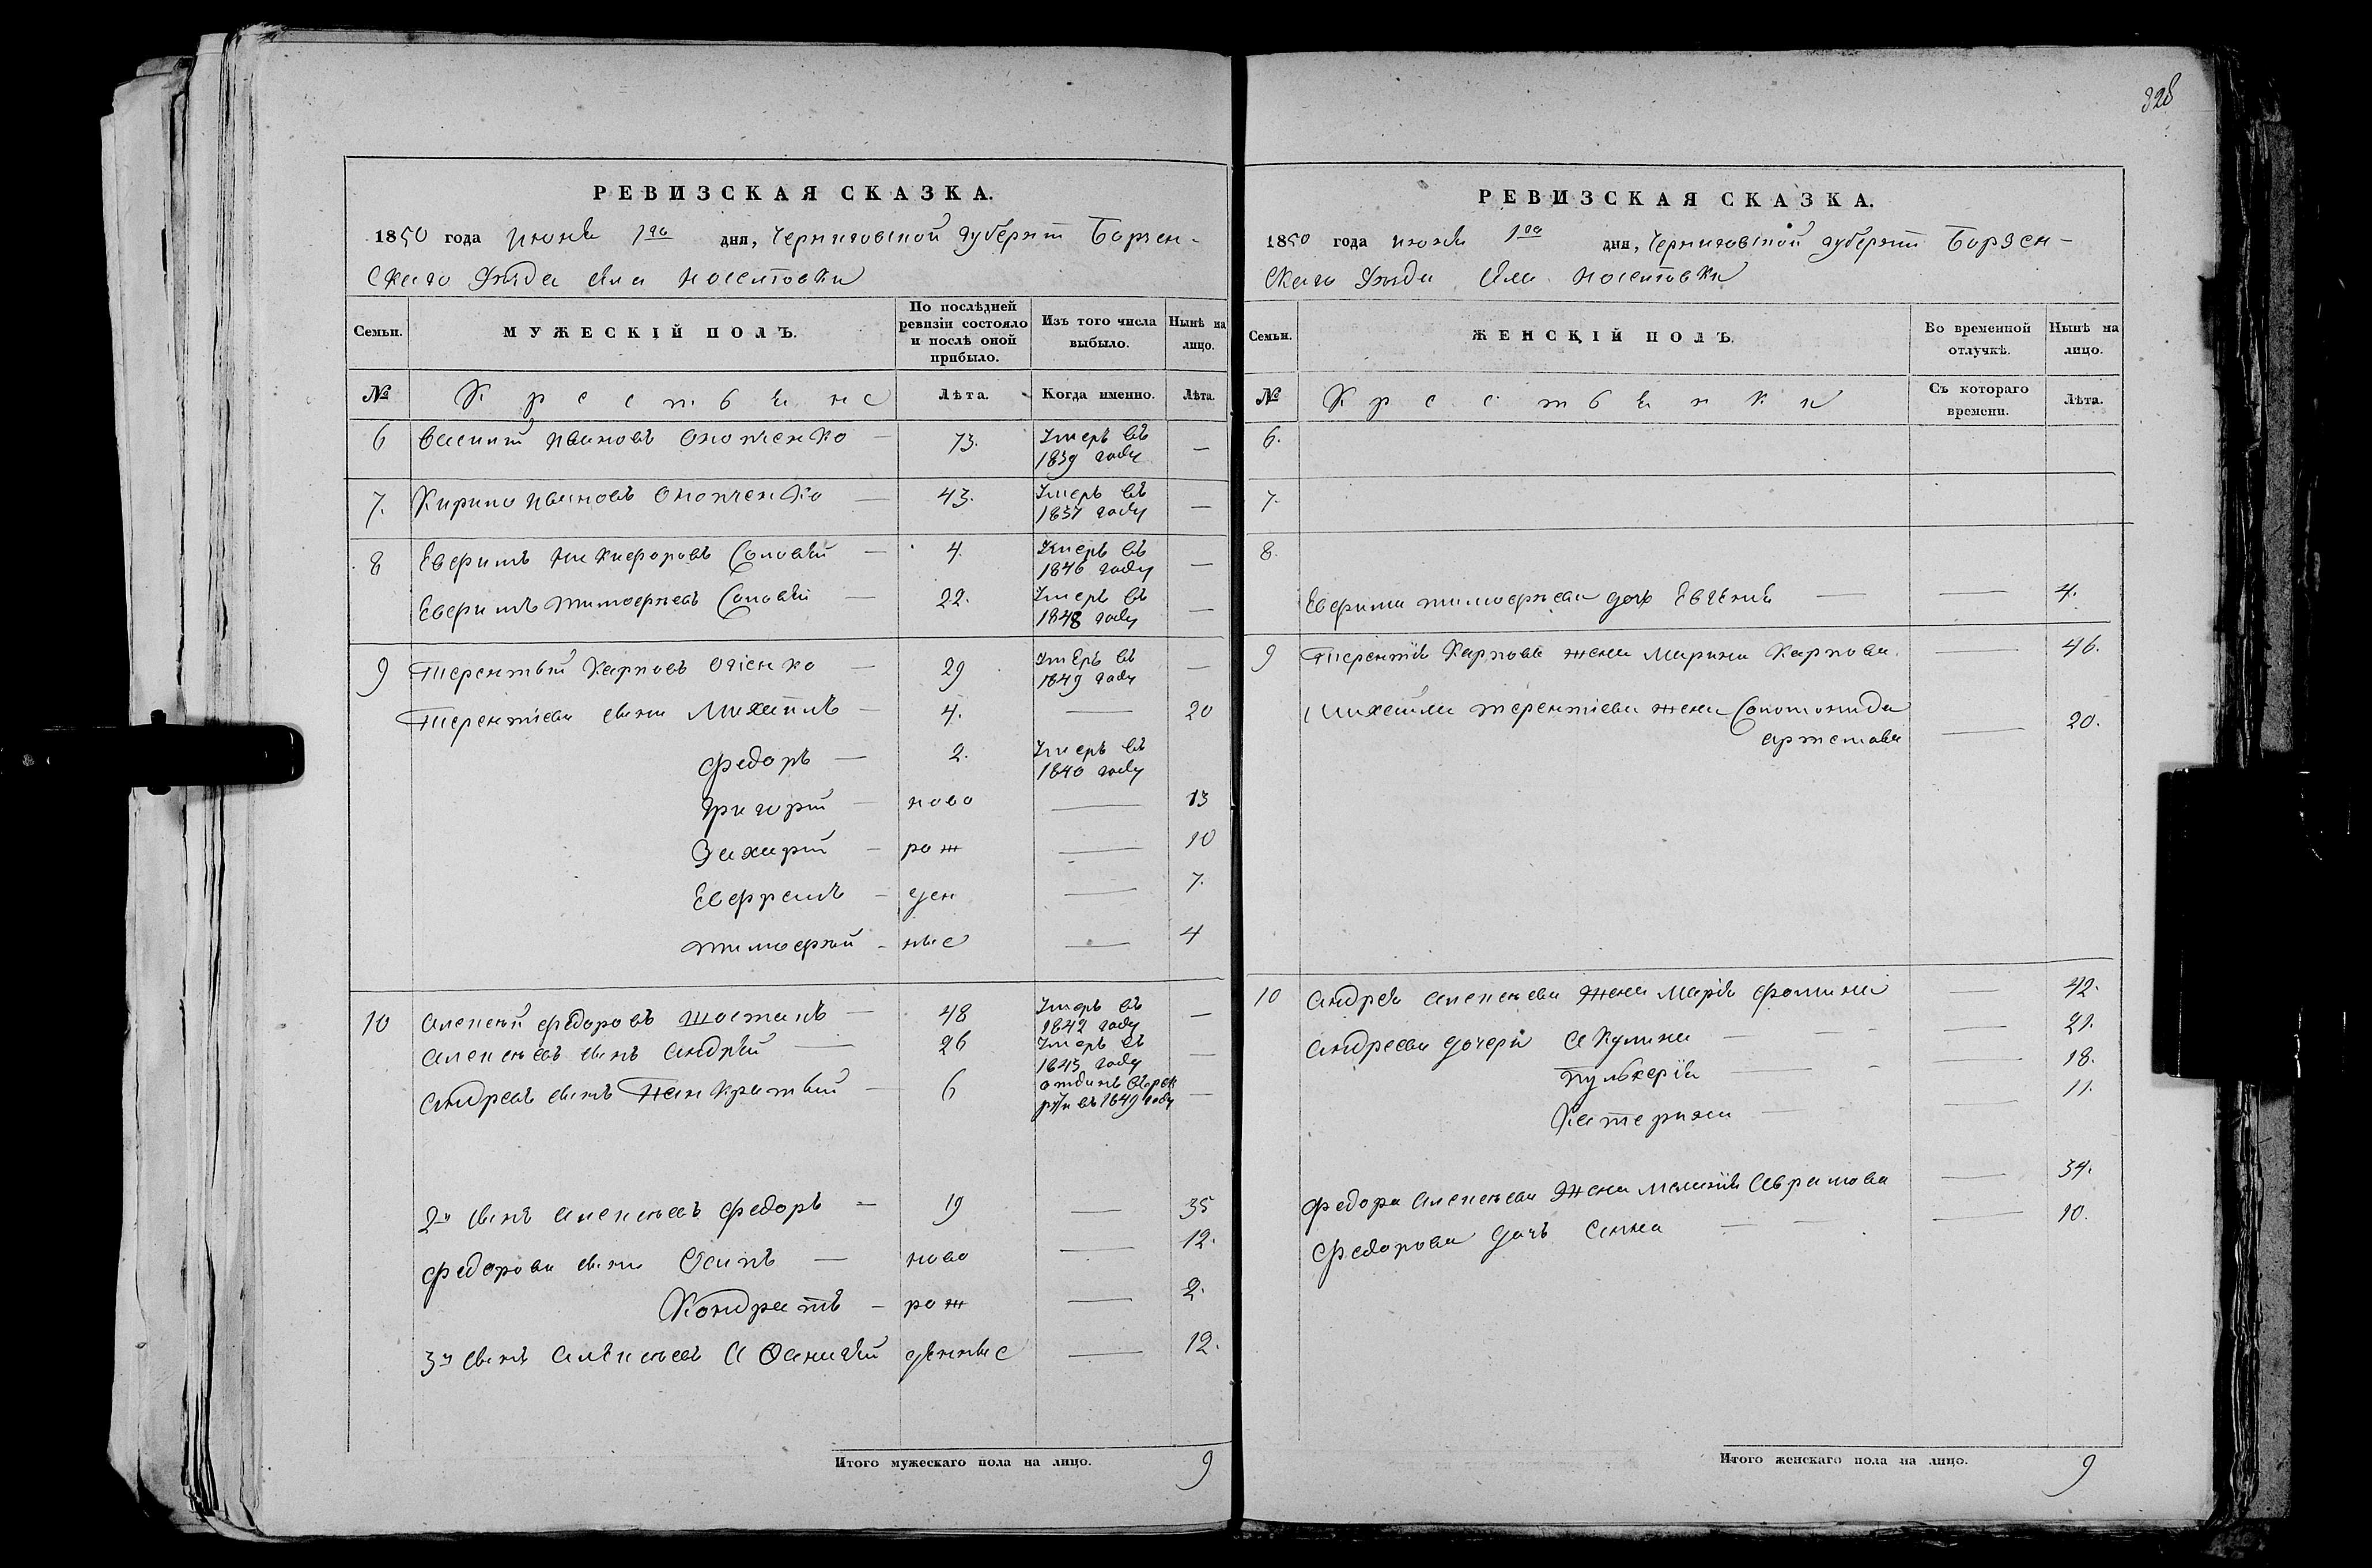 328
РЕВИЗСКАЯ СКАЗКА.
1850 года июня 1го дня, Черниговской губернии Борзен-
скаго уѣзда села
Семьи. МУЖЕСКІЙ ПОЛЪ. По послѣдней ревизіи состояло и послѣ оной прибыло. Изъ того числа выбыло. Нынѣ на лицо.
№ Крестьяне Лѣта. Когда именно. Лѣта.
6 Василій Ивановъ Онопченко — 73. Умеръ въ 1839 году —
7. Кирило Ивановъ Онопченко — 43. Умеръ въ 1837 году —
8 Евфимъ Никифоровъ Соловѣй — 4. Умеръ въ 1846 году —
Евфимъ Тимофѣевъ Соловѣй — 22. Умеръ въ 1848 году —
9 Терентѣй Карповъ — 29 Умеръ въ 1849 году —
Терентіевы сыны Михаилъ — 4. — 20
Федоръ — 2. Умеръ въ 1840 году
Григорій — ново — 13
Захарій — рож — 10
Евфремъ — ден — 7.
Тимофѣй — ные — 4
10 Алексѣй Федоровъ Шостакъ — 48 Умеръ въ 1842 году —
Алексѣевъ сынъ Андрѣй — 26 Умеръ въ 1843 году —
Андреевъ сынъ Панкратѣй — 6 отданъ въ рек руты въ 1849 году —
2й сынъ Алексѣевъ Федоръ — 19 — 35
Федоровы сыны Осипъ — ново — 12.
Кондратъ — рож — 2.
3й сынъ Алексѣевъ Афанасѣй денные — 12.
Итого мужескаго пола на лицо. 9
РЕВИЗСКАЯ СКАЗКА.
1850 года июня 1го дня, Черниговской губернии Борзен-
скаго уѣзда села
Семьи. ЖЕНСКІЙ ПОЛЪ. Во временной отлучкѣ. Нынѣ на лицо.
№ Крестьянки Съ котораго времени. Лѣта.
6.
7.
8.
Евфима Тимофѣева дочь — — 4.
9 Терентія Карпова жена Марина Карпова. — 46.
Михаила Терентіева жена Соломонида
— 20.
10 Андрея Алексѣева жена Марія Фомина — 42.
Андреевы дочери Акулина — — 21.
Пульхерія — — 18.
Катерина — — 11.
Федора Алексѣева жена Меланія Аврамова — 34.
Федорова дочь Анна — — 10.
Итого женскаго пола на лицо. 9